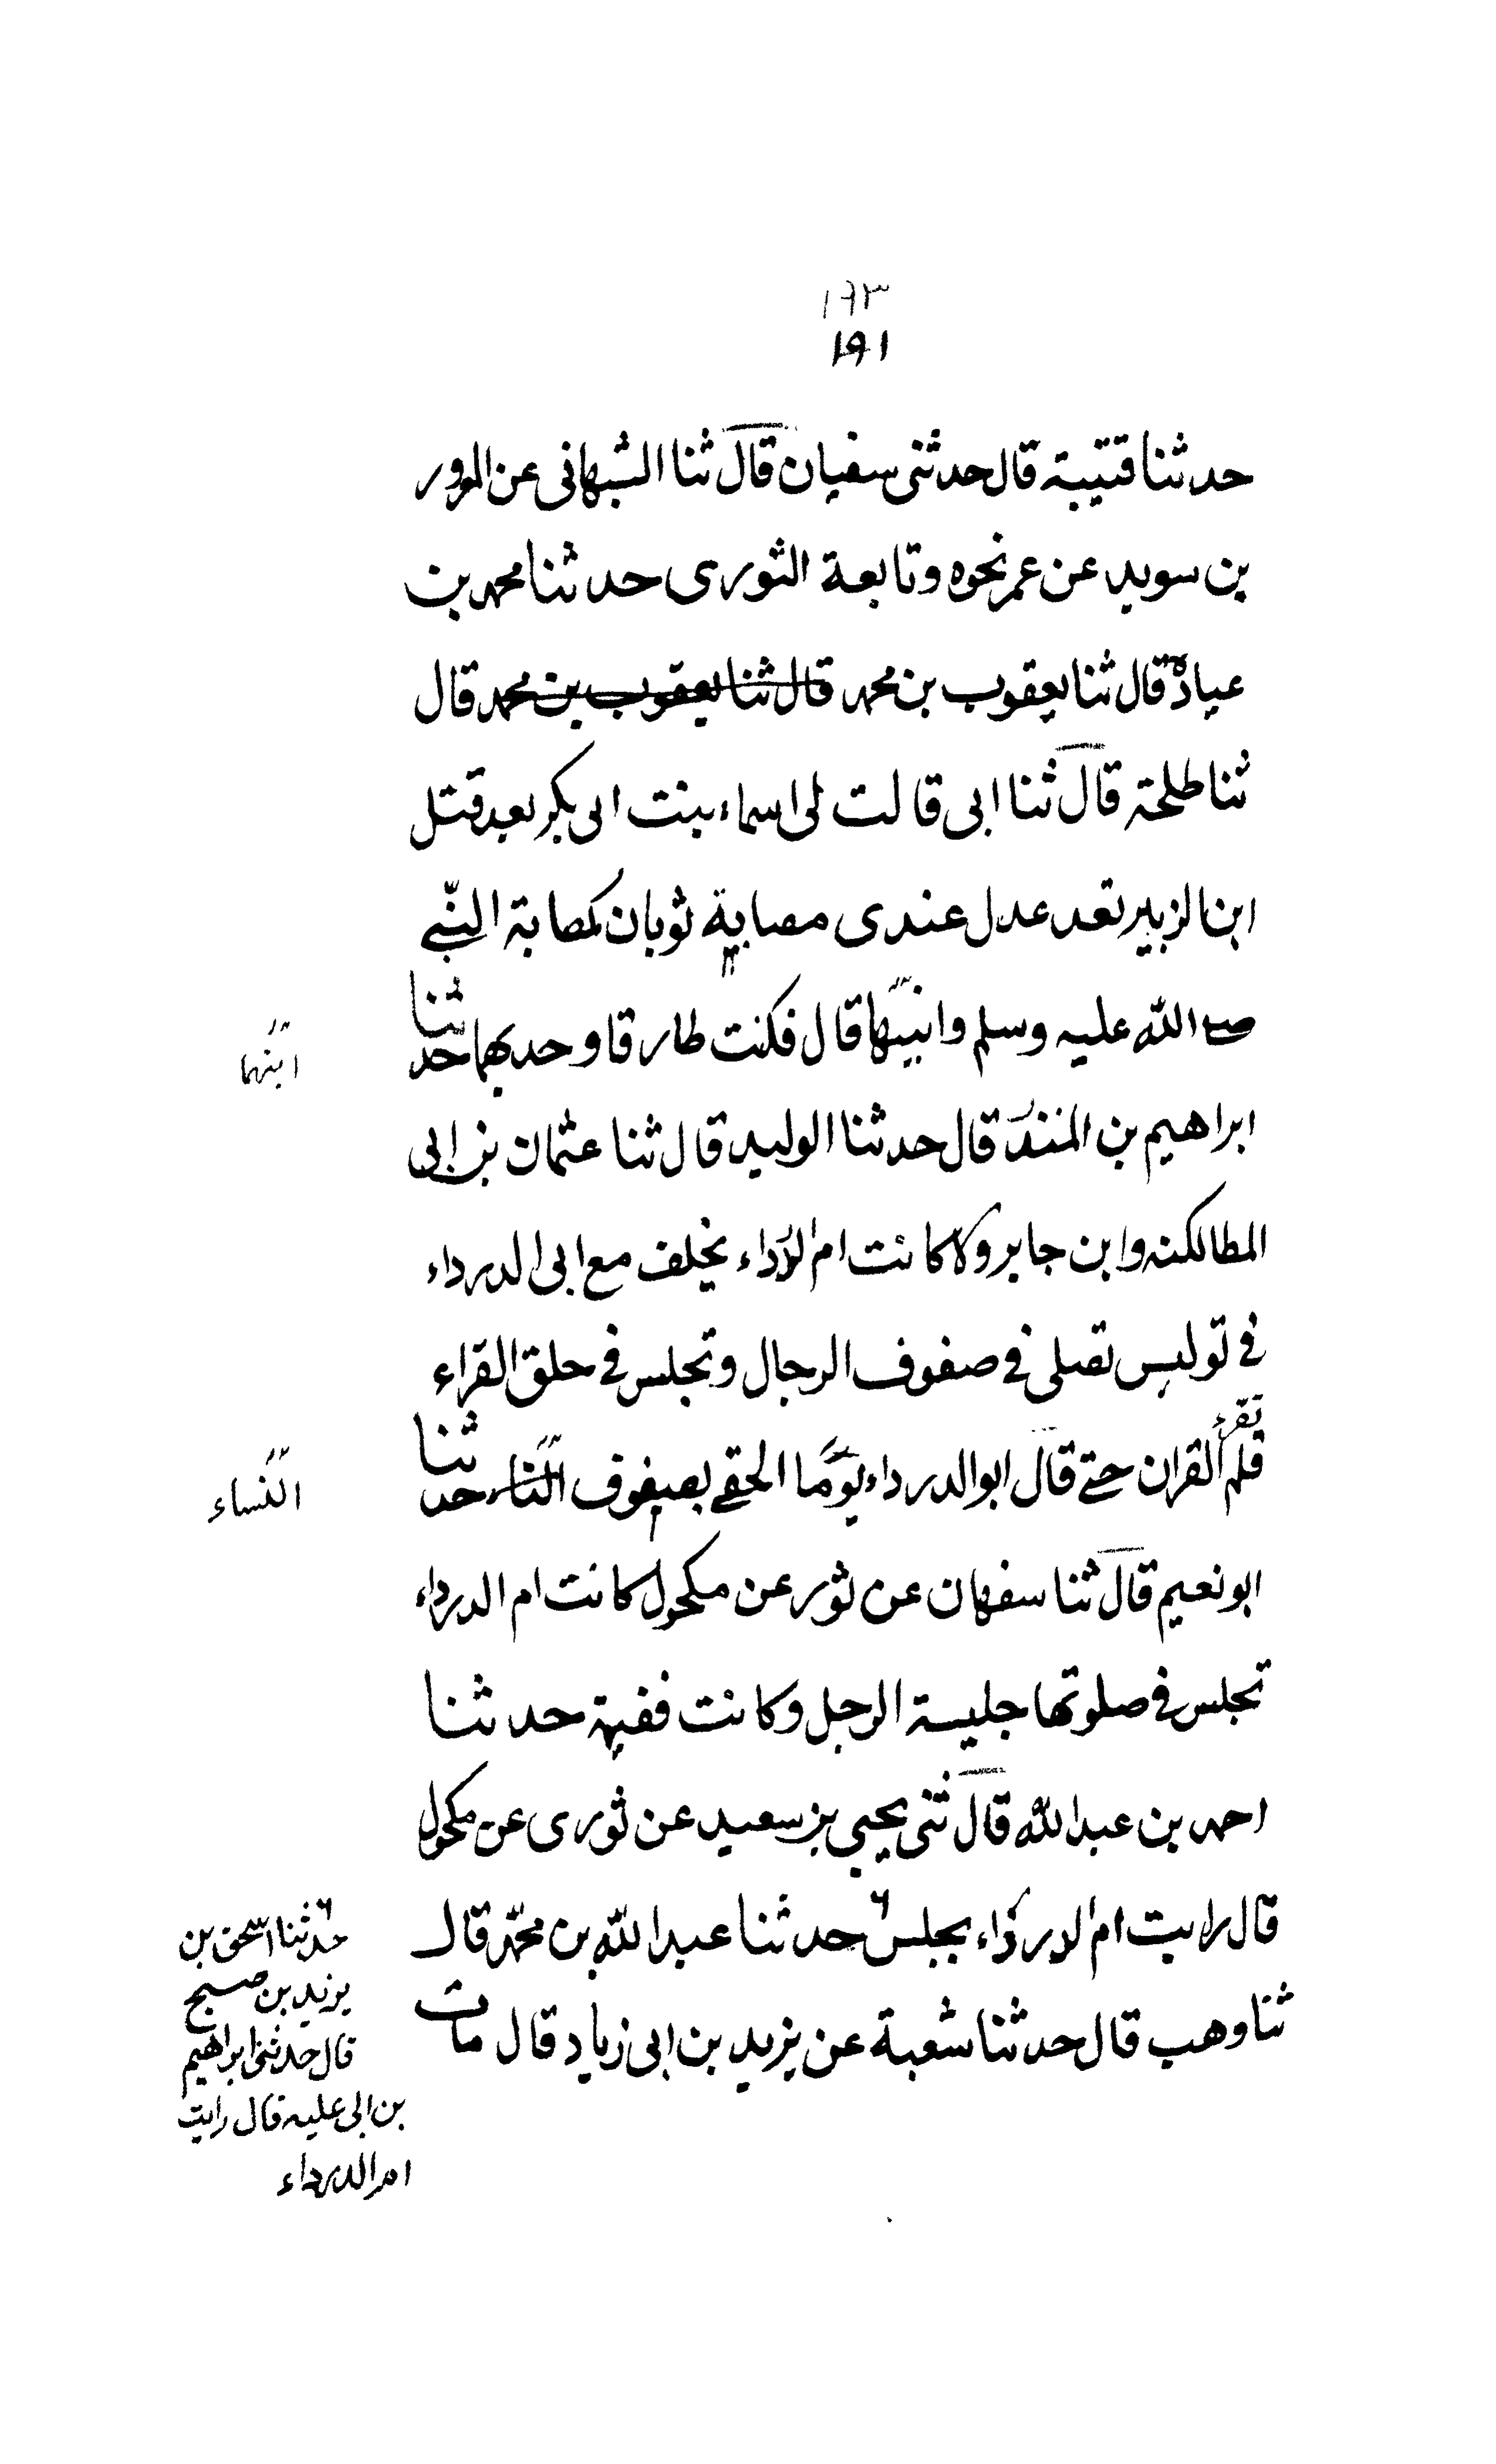 ١٩٣
١٩١
حدثنا قتيبة قال حدثنى سفيان قال ثنا الشبهانى عن المرور
بن سويد عن عمر نحوه وتابعة الثورى حدثنا محمد بن
عبادة قال ثنا يعقوب بن محمد قال ثنا يعقوب بن محمد قال
ثنا طلحة قال ثنا ابى قالت لى اسماء بنت ابى بكر بعد قتل
ابن الزبير تعد عدل عندى مصابة ثوبان كمصابة النبى
صلى الله عليه وسلم وانبيها قال فكنت طارقا وحدبهما حدثنا
ابنهما
ابراهيم بن المنذر قال حدثنا الوليد قال ثنا عثمان بن ابى
وابن جابر وكانت ام الدرداء يخلف مع ابى الدرداء
فى توليس تصلى فى صفوف الرجال وتجلس فى حلق القراء
تقرء
فلم القران حتى قال ابو الدرداء يوما الحقى بصفوف الناء حدثنا
النساء
ابو نعيم قال ثنا سفيان عن ثور عن مكحول كانت ام الدرداء
تجلس فى صلوتها جليسة الرجل وكانت فقيهة حدثنا
احمد بن عبد الله قال ثنى يحيى بن سعيد عن ثورى عن مكحول
قال رايت ام الدرداء يجلس حدثنا عبد الله بن محمد قال
ثنا وهب قال حدثنا شعبة عن يزيد بن ابى زياد قال مات
حدثنا اسحق بن
يزيد بن صبح
قال حدثنى ابراهيم
بن ابى عليه قال رايت
ام الدرداء